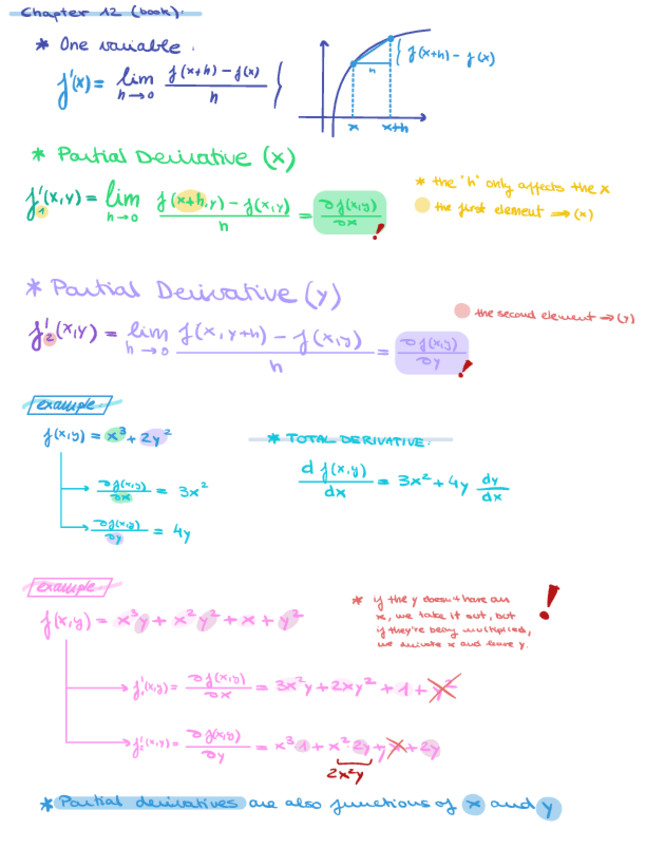 Chapter 12 (book).
* One variable.
f'(x) = lim h→0 f(x+h) - f(x) / h
} f(x+h) - f(x)
h
x x+h
* Partial Derivative (x)
f'₁(x,y) = lim h→0 f(x+h,y) - f(x,y) / h = ∂f(x,y) / ∂x !
* the "h" only affects the x
the first element → (x)
* Partial Derivative (y)
f'₂(x,y) = lim h→0 f(x,y+h) - f(x,y) / h = ∂f(x,y) / ∂y !
the second element → (y)
example
f(x,y) = x³ + 2y²
∂f(x,y) / ∂x = 3x²
∂f(x,y) / ∂y = 4y
* TOTAL DERIVATIVE.
d f(x,y) / dx = 3x² + 4y dy / dx
example
f(x,y) = x³y + x²y² + x + y²
* if the y doesn't have an
x, we take it out, but
if they're being multiplied,
we derivate x and leave y.
!
f'₁(x,y) = ∂f(x,y) / ∂x = 3x²y + 2xy² + 1 + y²
f'₂(x,y) = ∂f(x,y) / ∂y = x³·1 + x²·2y + x + 2y
2x²y
* Partial derivatives are also functions of x and y